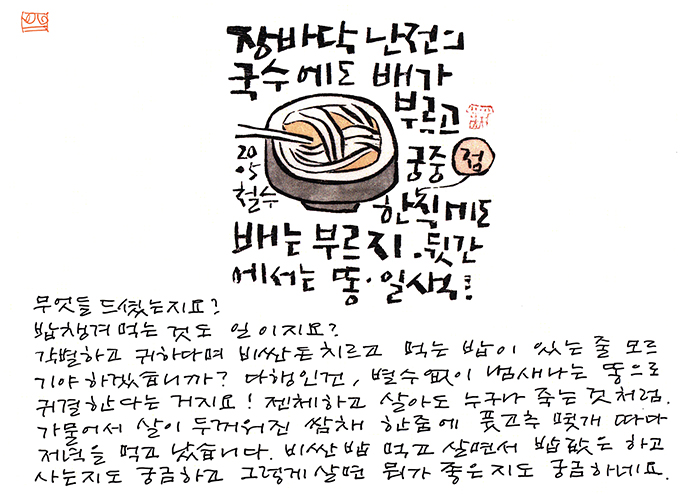 장바닥 난전의
국수에도 배가
부르고
궁중 점
한식에도
2005
철수
배는 부르지. 뒷간
에서는 똥·일색!
무엇들 드셨는지요?
밥챙겨 먹는 것도 일이지요?
각별하고 귀하다며 비싼돈치르고 먹는 밥이 있는 줄 모르
기야 하겠습니까? 다행인건, 별수없이 냄새나는 똥으로
귀결한다는 거지요! 젠체하고 살아도 누구나 죽는 것처럼.
가물어서 살이 두꺼워진 쌈채 한줌에 풋고추 몇개 따다
저녁을 먹고 났습니다. 비싼밥 먹고 살면서 밥값은 하고
사는지도 궁금하고 그렇게 살면 뭐가 좋은지도 궁금하네요.